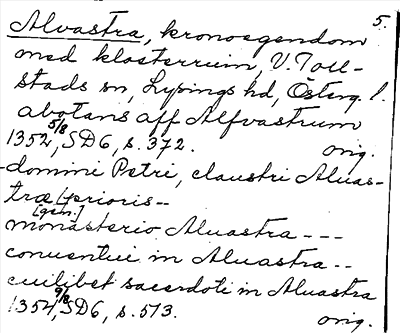 5.
Alvastra, kronoegendom
med klosterruin, V. Toll-
stads sn, Lysings hd, Österg. l.
abotans aff Alfvastrum
1352 5/8, SD6, s. 372. orig.
-domini Petri, claustri Aluas-
træ [gen.] prioris--
monasterio Aluastra ---
conuentui in Aluastra --
cuilibet sacerdoti in Aluastra
1354 9/8, SD6, s. 513. orig.